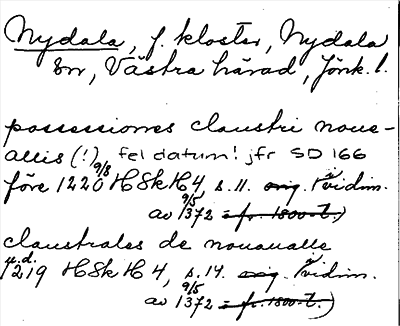 Nydala, f. kloster, Nydala
sn, Västra härad, Jönk. l.
possessiones claustri noue-
allis (!) fel datum! jfr SD 166
före 1220 9/8 HSkH4, s. 11. orig. (vidim.
av 9/5 1372 = fr. 1800-t.)
claustrales de nouaualle
u.d. 1219 HSkH 4, s. 14. orig. (vidim.
av 9/5 1372 = fr. 1800-t.)